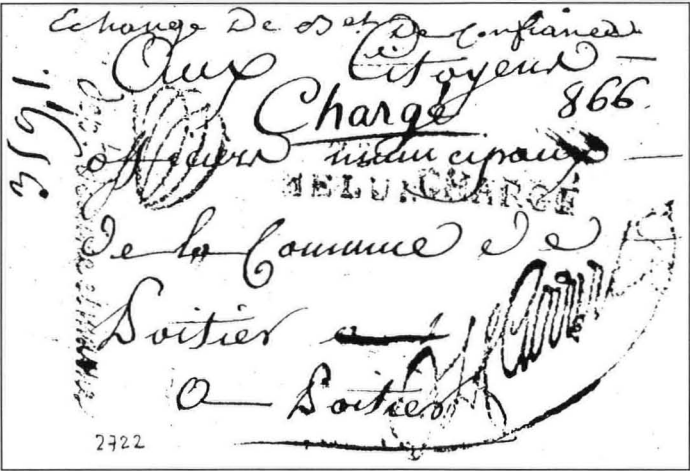 Echange De Bet De Confiance
Aux Citoyens
Chargé 866
3591.
officiers municipaux
MELUN CHARGÉ
de la Commune de
Poitier
a Poitier
2722